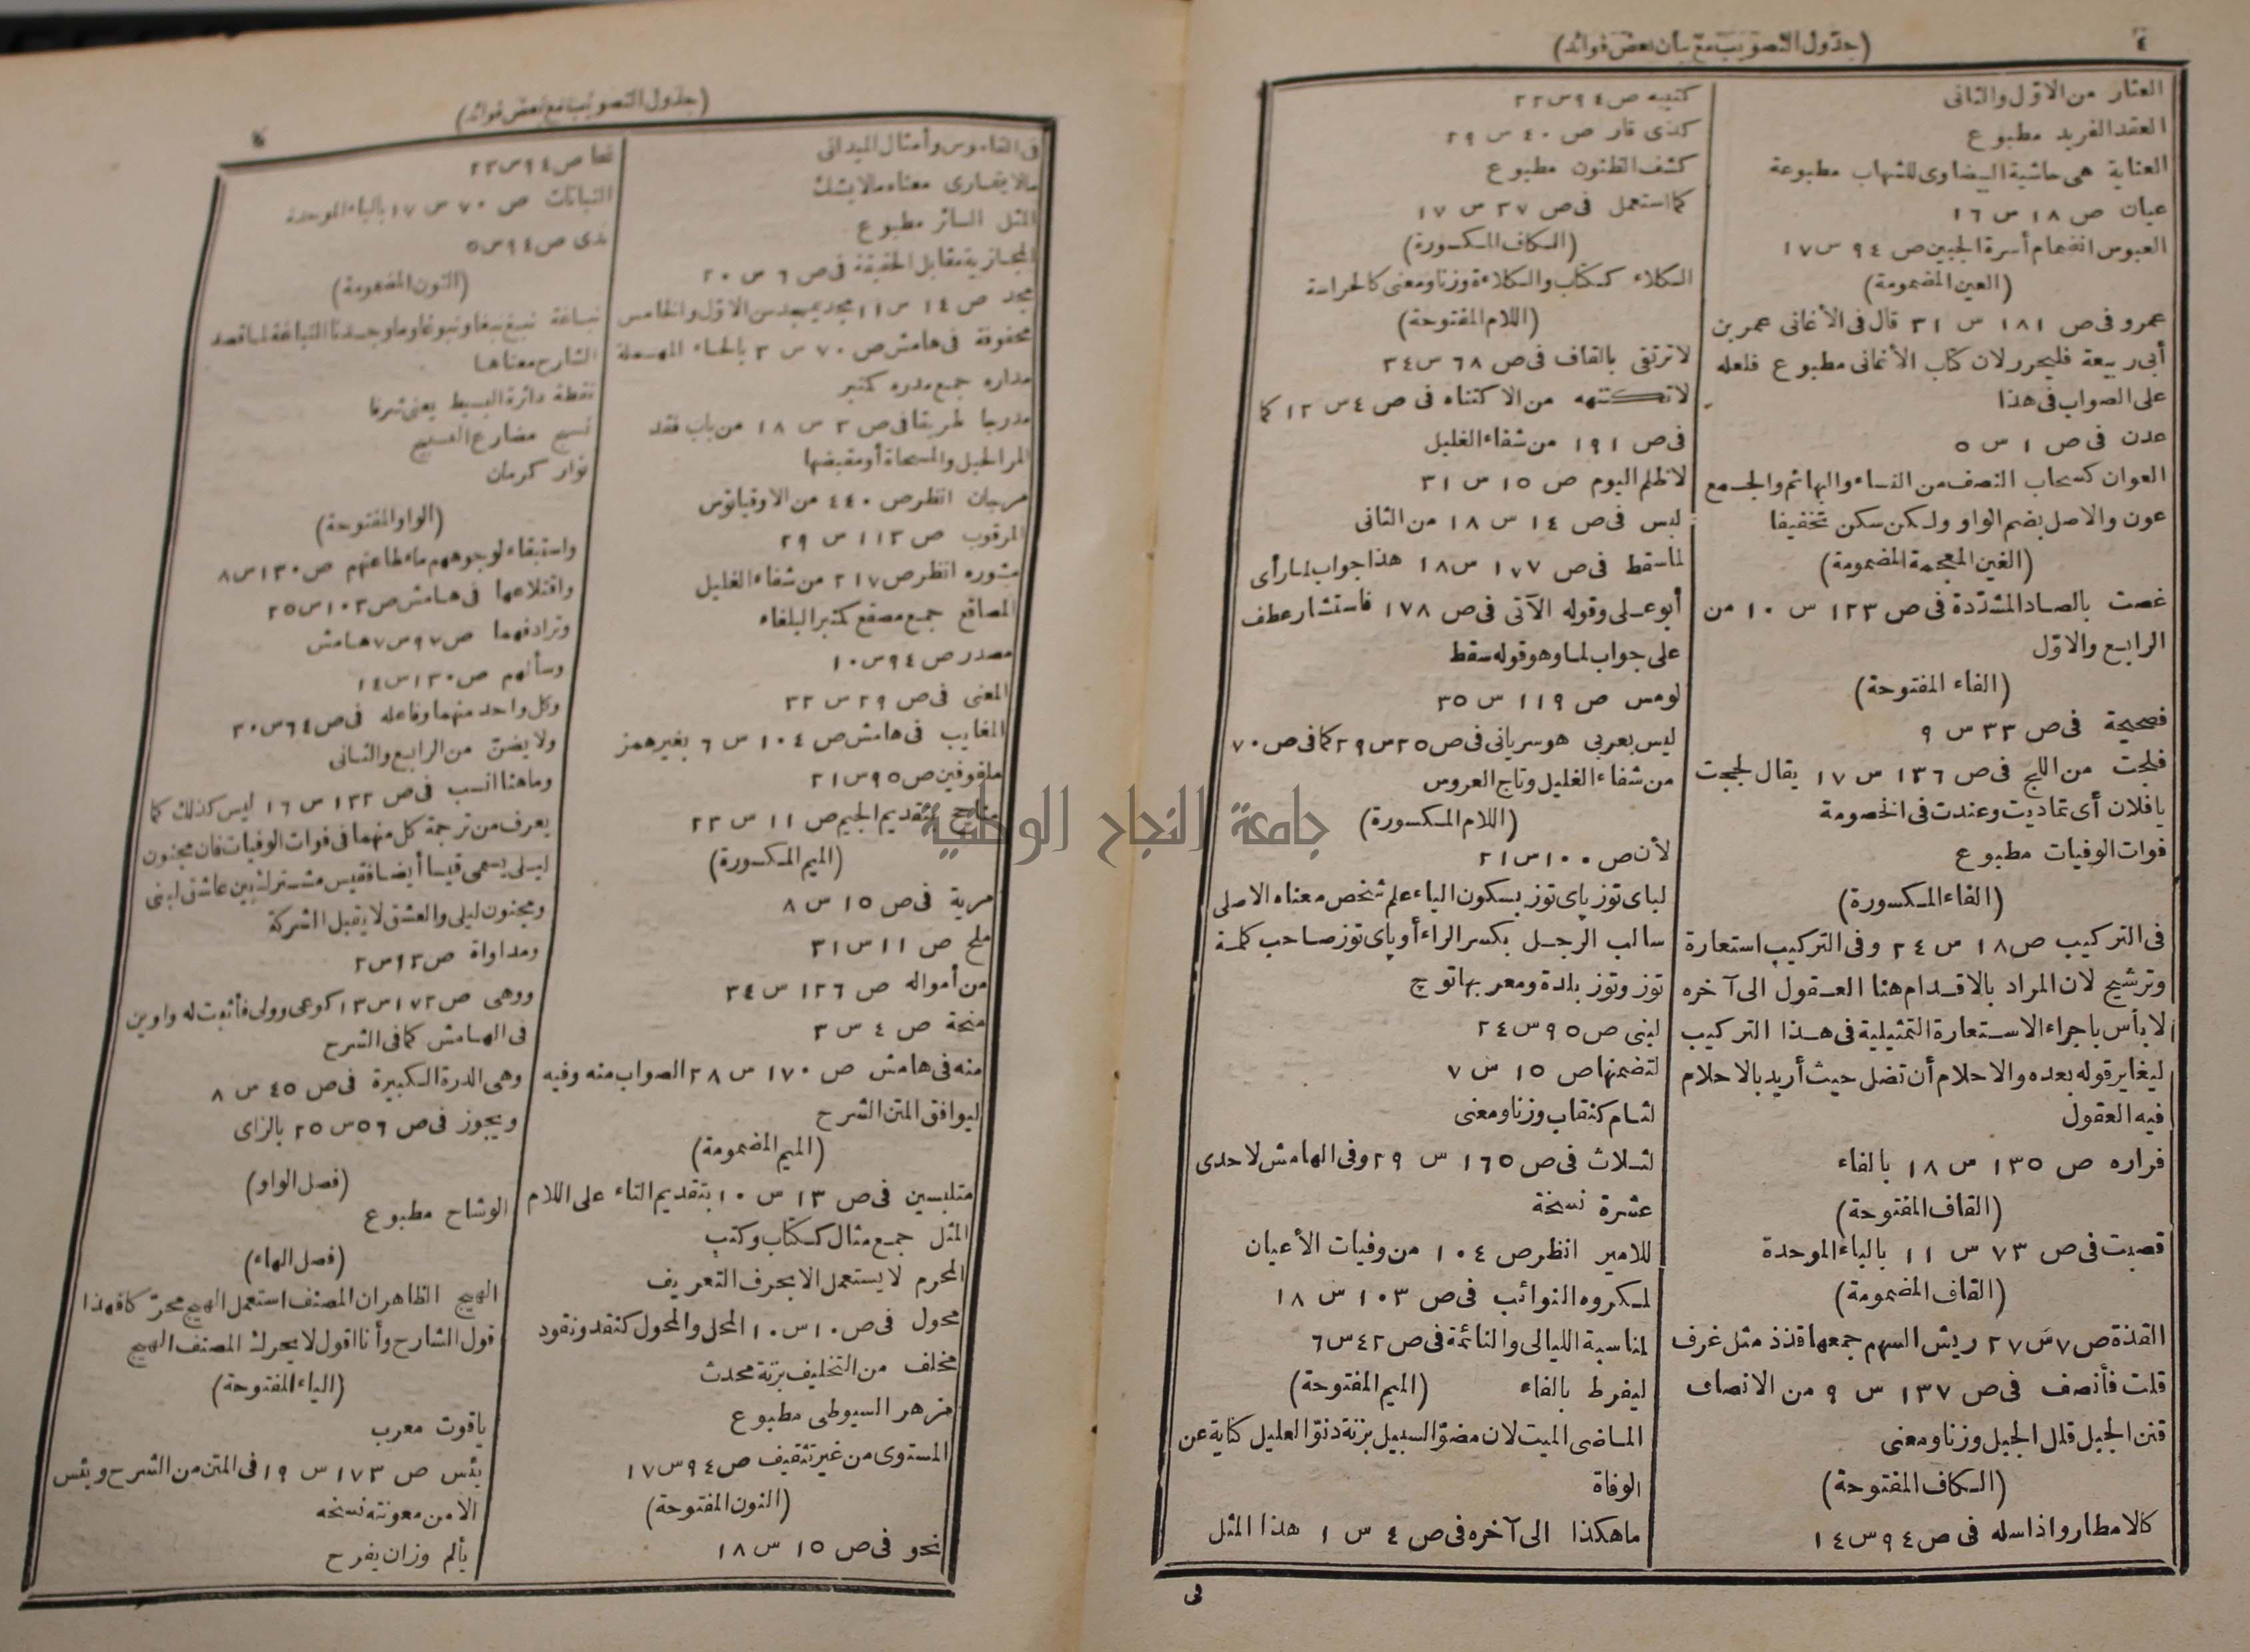 ٤
(جدول التصويب مع بيان بعض فوائد)
العثار من الاول والثانى
العقد الفريد مطبوع
العناية هى حاشية البيضاوى للشهاب مطبوعة
عيان ص ١٨ س ١٦
العبوس انضمام أسرة الجبين ص ٩٤ س ١٧
(العين المضمومة)
عمرو فى ص ١٨١ س ٣١ قال فى الأغانى عمر بن
أبى ربيعة فليحرر لان كتاب الأغانى مطبوع فلعله
على الصواب فى هذا
عدن فى ص ١ س ٥
العوان كسحاب النصف من النساء والبهائم والجمع
عون والاصل بضم الواو ولكن سكن تخفيفا
(الغين المعجمة المضمومة)
غصت بالصاد المشددة فى ص ١٢٣ س ١٠ من
الرابع والاول
(الفاء المفتوحة)
فصحيحة فى ص ٣٣ س ٩
فلججت من اللج فى ص ١٣٦ س ١٧ يقال لججت
يافلان أى تماديت وعندت فى الخصومة
فوات الوفيات مطبوع
(الفاء المكسورة)
فى التركيب ص ١٨ س ٢٤ وفى التركيب استعارة
وترشيح لان المراد بالاقدام هنا العقول الى آخره
لا بأس باجراء الاستعارة التمثيلية فى هذا التركيب
ليغاير قوله بعده والاحلام أن تضل حيث أريد بالاحلام
فيه العقول
فراره ص ١٣٥ س ١٨ بالفاء
(القاف المفتوحة)
قصبت فى ص ٧٣ س ١١ بالباء الموحدة
(القاف المضمومة)
القذة ص ٧ س ٢٧ ريش السهم جمعها قذذ مثل غرف
قلت فأنصف فى ص ١٣٧ س ٩ من الانصاف
قنن الجبل قلل الجبل وزنا ومعنى
(الكاف المفتوحة)
كالامطار واذا سله فى ص ٩٤ س ١٤
كتيبه ص ٩٤ س ٢٢
كذى قار ص ٤٠ س ٢٩
كشف الظنون مطبوع
كما استعمل فى ص ٢٧ س ١٧
(الكاف المكسورة)
الكلاء ككتاب والكلاءة وزنا ومعنى كالحراسة
(اللام المفتوحة)
لا ترتقى بالقاف فى ص ٦٨ س ٣٤
لا تكتنهه من الاكتناه فى ص ٤ س ١٢ كما
فى ص ١٩١ من شفاء الغليل
لا ظلم اليوم ص ١٥ س ٣١
لبس فى ص ١٤ س ١٨ من الثانى
لما سقط فى ص ١٧٧ س ١٨ هذا جواب لما رأى
أبو على وقوله الآتى فى ص ١٧٨ فاستشار عطف
على جواب لما وهو قوله سقط
لومس ص ١١٩ س ٣٥
ليس بعربى هو سريانى فى ص ٢٥ س ٢٩ كما فى ص ٧٠
من شفاء الغليل وتاج العروس
(اللام المكسورة)
لأن ص ١٠٠ س ٢١
لباى توز باى توز بسكون الياء علم شخص معناه الاصلى
سالب الرجل بكسر الراء أو باى توز صاحب كلمة
توز وتوز بلدة ومعربها توج
لبنى ص ٩٥ س ٢٤
لتضمنها ص ١٥ س ٧
لثام كنقاب وزنا ومعنى
لثلاث فى ص ١٦٥ س ٢٩ وفى الهامش لاحدى
عشرة نسخة
للامير انظر ص ١٠٤ من وفيات الأعيان
لمكروه النوائب فى ص ١٠٣ س ١٨
لمناسبة الليالى والنائمة فى ص ٤٢ س ٦
ليفرط بالفاء (الميم المفتوحة)
الماضى الميت لان مضو السبيل بزنة دنو العليل كناية عن
الوفاة
ما هكذا الى آخره فى ص ٤ س ١ هذا المثل
فى
(جدول التصويب مع بعض فوائد)
٥
فى القاموس وأمثال الميدانى
مالا يتمارى معناه مالا يشك
المثل السائر مطبوع
المجازية مقابل الحقيقة فى ص ٦ س ٢٠
مجد ص ١٤ س ١١ مجد يمجد من الاول والخامس
محفوفة فى هامش ص ٧٠ س ٣ بالحاء المهملة
مداره جمع مدره كمنبر
مدرجا طريقا فى ص ٣ س ١٨ من باب فقد
المر الحبل والمسحاة أو مقبضها
مرجان انظر ص ٤٤٠ من الاوقيانوس
المرقوب ص ١١٣ س ٢٩
مشوره انظر ص ٢١٧ من شفاء الغليل
المصاقع جمع مصقع كمنبر البلغاء
مصدر ص ٩٤ س ١٠
المغنى فى ص ٢٩ س ٣٢
المغايب فى هامش ص ١٠٤ س ٦ بغير همز
ملفوفين ص ٩٥ س ٢١
بتقديم الجيم ص ١١ س ٢٢
(الميم المكسورة)
مرية فى ص ١٥ س ٨
ملح ص ١١ س ٣١
من أمواله ص ١٢٦ س ٣٤
منحة ص ٤ س ٣
منه فى هامش ص ١٧٠ س ٢٨ الصواب منه وفيه
ليوافق المتن الشرح
(الميم المضمومة)
متلبسين فى ص ١٣ س ١٠ بتقديم التاء على اللام
المثل جمع مثال ككتاب وكتب
المحرم لا يستعمل الا بحرف التعريف
محول فى ص ١٠ س ١٠ المحل والمحول كنقد ونقود
مخلف من التخليف بزنة محدث
مزهر السيوطى مطبوع
المستوى من غير تثقيف ص ٩٤ س ١٧
(النون المفتوحة)
نحو فى ص ١٥ س ١٨
ص ٩٤ س ٢٣
النباتات ص ٧٠ س ١٧ بالباء الموحدة
ندى ص ٩٤ س ٥
(النون المضمومة)
نباغة نبغ نبغا ونبوغا وما وجدنا النباغة لما قصد
الشارح معناها
نقطة دائرة البسيط يعنى شرفا
نسيج مضارع النسيج
نوار كرمان
(الواو المفتوحة)
واستبقاء لوجوههم ماء طاعتهم ص ١٣٠ س ٨
واقتلاعها فى هامش ص ١٠٢ س ٢٥
وترادفهما ص ٩٧ س ٧ هامش
وسألهم ص ١٣٠ س ١٤
وكل واحد منهما وفاعله فى ص ٦٤ س ٣٠
ولا يضن من الرابع والثانى
وما هنا انسب فى ص ١٣٢ س ١٦ ليس كذلك كما
يعرف من ترجمة كل منهما فى فوات الوفيات فان مجنون
ليلى يسمى قيسا أيضا فقيس مشترك بين عاشق لبنى
ومجنون ليلى والعشق لا يقبل الشركة
ومداواة ص ١٢ س ٢
ووهى ص ١٧٢ س ١٣ كوعى وولى فأثبت له واوين
فى الهامش كما فى الشرح
وهى الدرة الكبيرة فى ص ٤٥ س ٨
ويجوز فى ص ٥٦ س ٢٥ بالزاى
(فصل الواو)
الوشاح مطبوع
(فصل الهاء)
الهيج الظاهر ان المصنف استعمل الهيج محركا فهذا
قول الشارح وأنا اقول لا يحرك المصنف الهيج
(الياء المفتوحة)
ياقوت معرب
يئس ص ١٧٣ س ١٩ فى المتن من الشرح ويئس
الامن معونته نسخه
يألم وزان يفرح
جامعة النجاح الوطنية